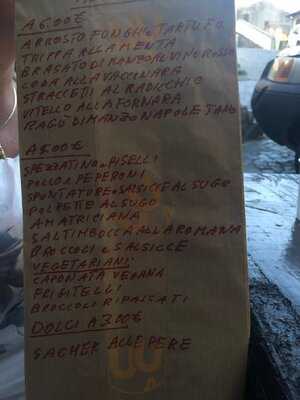 A 6.00€
ARROSTO FUNGHI e TARTUFO
TRIPPA ALLA MENTA
BRASATO DI MANZO AL VINO ROSSO
CODA ALLA VACCINARA
STRACCETTI AL RADICCHIO
VITELLO ALLA FORNARA
RAGÙ DI MANZO NAPOLETANO
A 5.00€
SPEZZATINO e PISELLI
POLLO e PEPERONI
SPUNTATURE e SALSICCE AL SUGO
POLPETTE AL SUGO
AMATRICIANA
SALTIMBOCCA ALLA ROMANA
BROCCOLI e SALSICCE
VEGETARIANI:
CAPONATA VEGANA
FRIGITELLI
BROCCOLI RIPASSATI
DOLCI A 3.00€
SACHER ALLE PERE